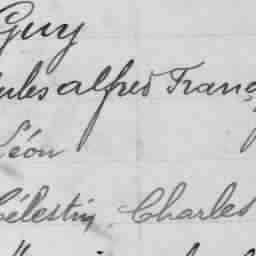 Guy
ules alfred Franç
Léon
Célestin Charles